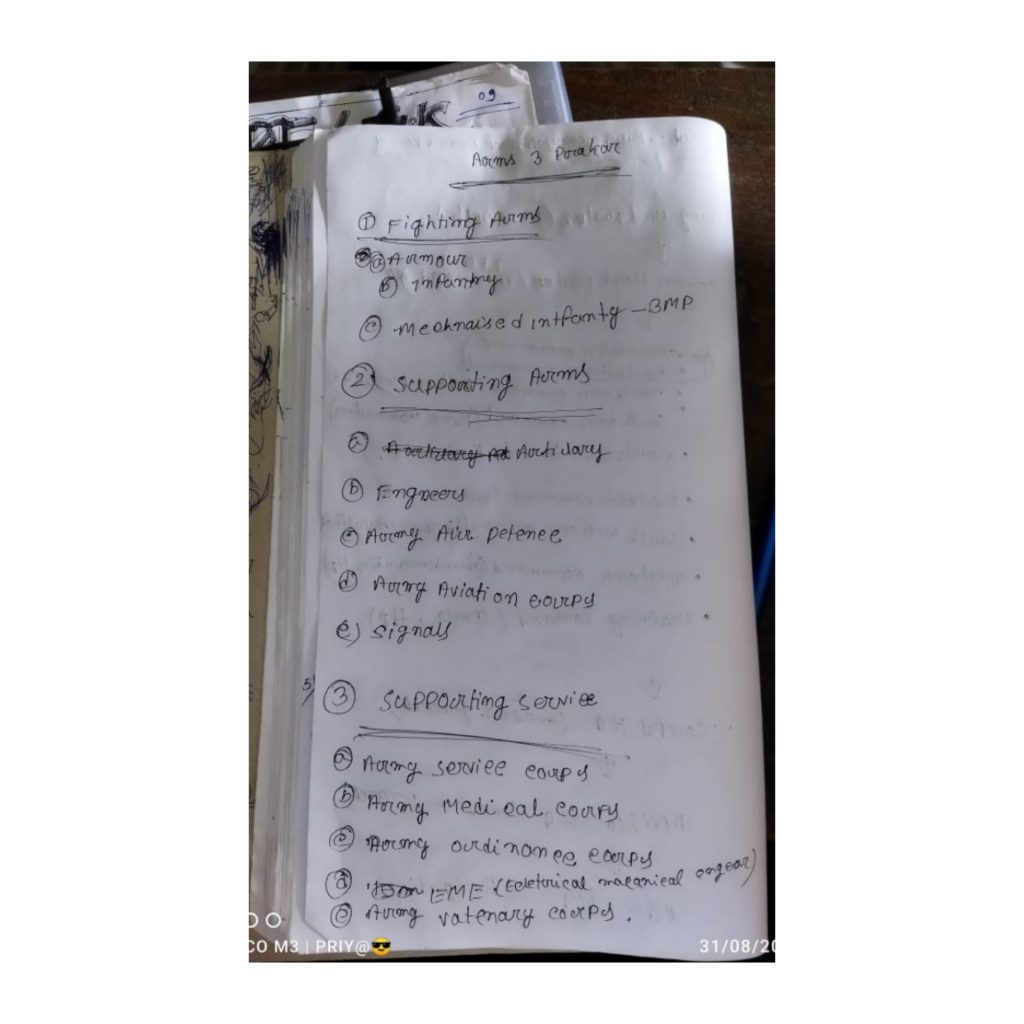 09
Arms 3 Porakar
① Fighting Arms
ⓐ Armour
ⓑ Infantrey
ⓒ Mechnaised intfanty - BMP
② Supporting Arms
ⓐ Artilary
ⓑ Engneers
ⓒ Army Air Defence
ⓓ Army Aviation corps
e) Signals
5)
③ Supporting service
ⓐ Army service corps
ⓑ Army Medical corps
ⓒ Army ordinance corps
ⓓ EME (Ecletorical macanical engear)
ⓔ Army vatenary corps.
CO M3 | PRIY@😎
31/08/20